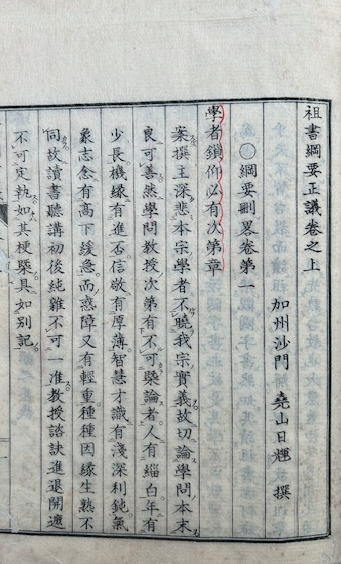 祖書綱要正議卷之上
加州沙門 堯山日輝 撰
〇綱要刪畧卷第一
學者鎖仰必有次第章
案撰主深悲本宗學者不曉我宗實義故切論學問本末
良可善然學問教授次第有不可槩論者人有緇白年有
少長機緣有進否信敬有厚薄智慧才識有淺深利鈍氣
象志念有高下緩急而惑障又有輕重種種因緣生熟不
同故讀書聽講初後純雜不可一准教授諮訣進退開遮
不可定執如其梗槩具如別記